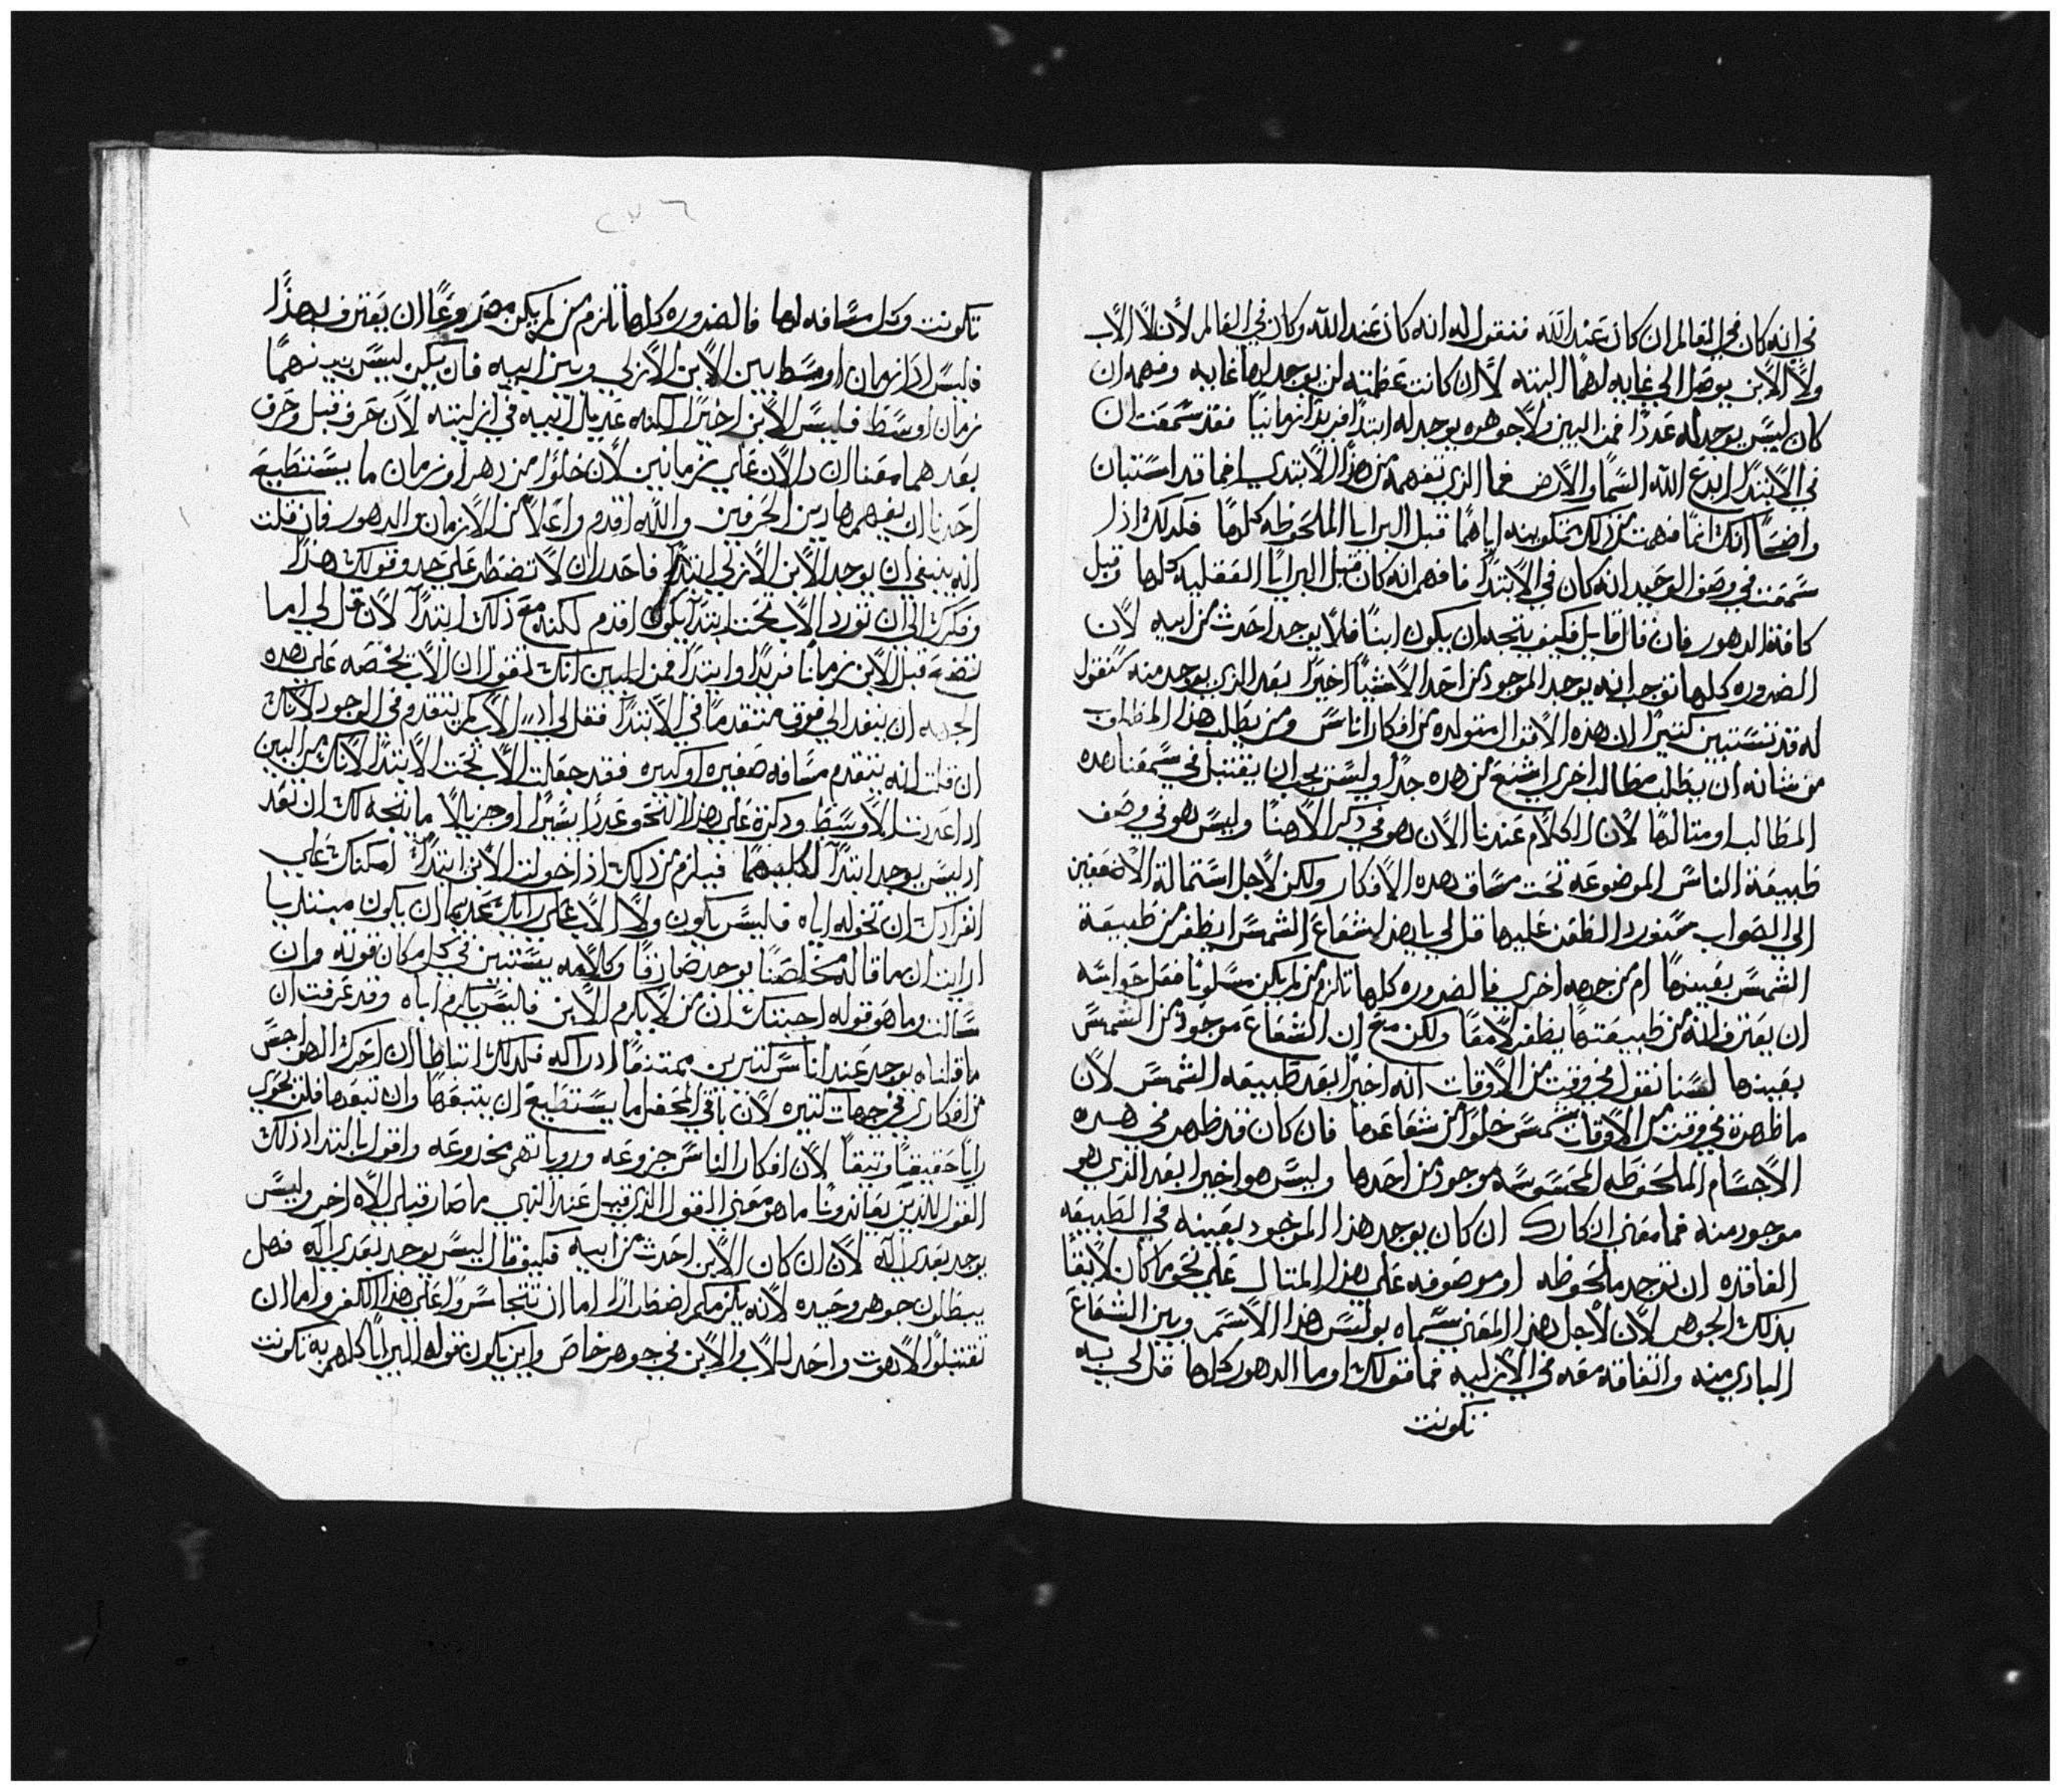 في انه كان في العالم ان كان عند الله فنقول له انه كان عند الله وكان في العالم لان لا الاب
ولا الابن يوصل الي غايه لهما البته لان ان كانت عظمته لن يوجد لها غايه وفهمه ان
كان ليس يوجد له عددًا فمن البين ولا جوهره يوجد له ابتدا فريدًا زمانيًا فقد سمعت ان
في الابتدا ابدع الله السما والارض فما الذي تفهمه من هذا الابتدي انما قد استبان
واضحًا انك انما فهمت من ذلك تكوينه اياهما قبل البرايا الملحوظه كلها فكذلك اذا
سمعت في وصف الوحيد انه كان في الابتدا فافهم انه كان قبل البرايا العقليه كلها وقبل
كافة الدهور فان قال قايل فكيف يتجه ان يكون ابنًا فلا يوجد احدث من ابيه لان
الضروره كلها توجب انه يوجد الموجود من احد الاشيا اخيرًا بعد الذي يوجد منه سنقول
له قد تستبين كثيرًا ان هذه الاقوال متولده من افكار اناس ومن يطلب هذا المطلوب
من شانه ان يطلب مطالب اخري اشنع من هذه جدًا وليس يجب ان يقتبل في سمعنا هذه
المطالب او مثالها لان الكلام عندنا الان هو في ذكر الاهنا وليس هو في وصف
طبيعة الناس الموضوعه تحت مساق هذه الافكار ولكن لاجل استمالة الاضعفين
الي الصواب سنورد الطعن عليها قل لي يا هذا شعاع الشمس ايظفر من طبيعة
الشمس بعينها ام من جهه اخري فالضروره كلها تلزم من لم يكن مسلوبًا فعل حواسه
ان يعترف انه من طبيعتها يظفر لامعًا ولكن مع ان الشعاع موجود من الشمس
بعينها لسنا نقول في وقت من الاوقات انه اخيرًا بعد طبيعه الشمس لان
ما ظهرة في وقت من الاوقات شمس خلوًا من شعاعها فان كان قد ظهر في هذه
الاجسام الملحوظه المحسوسه موجود من احدها وليس هو اخيرا بعد الذي هو
موجود منه فما معني انكارك ان كان يوجد هذا الموجود بعينه في الطبيعه
الفاقده ان توجد ملحوظه او موصوفه علي هذا المثال علي نحو ما كان لايقًا
بذلك الجوهر لان لاجل هذا المعني سماه بولس هذا الاسم وبين الشعاع
البادي منه واتفاقه معه في الازليه فما قولك اوما الدهور كلها قل لي به
تكونت
تكونت وكل مسافه لها فالضروره كلها تلزم من لم يكن مصروعًا ان يعترف بهذا
فليس اذًا زمان اوسط بين الابن الازلي وبين ابيه فان يكن ليس بينهما
زمان اوسط فليس الابن اخيرًا لكنه عديل ابيه في ازليته لان حرف قبل وحرف
بعد هما معنيان دالان علي زمانين لان خلوًا من دهر او زمان ما يستطيع
احدنا ان يفهم هاذين الحرفين والله اقدم واعلا من الازمان والدهور فان قلت
انه ينبغي ان يوجد الابن الازلي ابتدا فاحذر ان لا تضطر علي حد وقولك هذا
وفكرك الي ان تورد الاب تحت ابتدا يكون اقدم لكنه مع ذلك ابتدآ لان قل لي اما
تضع قبل الابن زمانًا فريدًا وابتدا فمن البين انك تقول ان الاب يخصه علي هذه
الجهه ان ينفد الي فوق متقدمًا في الابتدا فقل لي الاب كم يتقدم في الوجود لانك
ان قلت انه يتقدم مسافه صغيره او كبيره فقد جعلت الاب تحت الابتدا لانك من البين
اذا عددت الاوسط وذكرة علي هذا النحو عددًا يسيرًا او جزيلًا ما يتجه لك ان تعد
اذ ليس يوجد ابتدآ لكليهما فيلزم من ذلك اذا خولت الابن ابتدآ لمكنك علي
انفرادك ان تخوله اياه فليس يكون ولا الاب علي رايك عديمًا ان يكون مبتديا
ارايت ان ما قاله مخلصنا يوجد صادقًا وكلامه يستبين في كل مكان قوته وان
سالت وما هو قوله اجبتك ان من لا يكرم الابن فليس يكرم اباه وقد عرفت ان
ما قلناه يوجد عند اناس كثيرين ممتنعًا ادراكه فلذلك انباطا ان احرك الهواجس
من افكاري في جهات كثيره لان باقي المحفل ما يستطيع ان يتبعها وان تبعها فلن يحوي
رايًا حقيقيًا وثيقًا لان افكار الناس جزوعه وروياتهم مخدوعه واقول بالتداد ذلك
القول للذين يعاندونا ما هو معني القول الذي قيل عند النبي ما صار قبلي الاه اخر وليس
يوجد بعدي اله لان ان كان الابن احدث من ابيه فكيف قال ليس يوجد بعدي اله فهل
يبطلون جوهر وحيده لانه يلزمكم اضطرارًا اما ان تتجاسروا علي هذا الكفر واما ان
تقتبلوا لاهوت واحد للاب والابن في جوهر خاص واين يكون قوله البرايا كلهم به تكونت